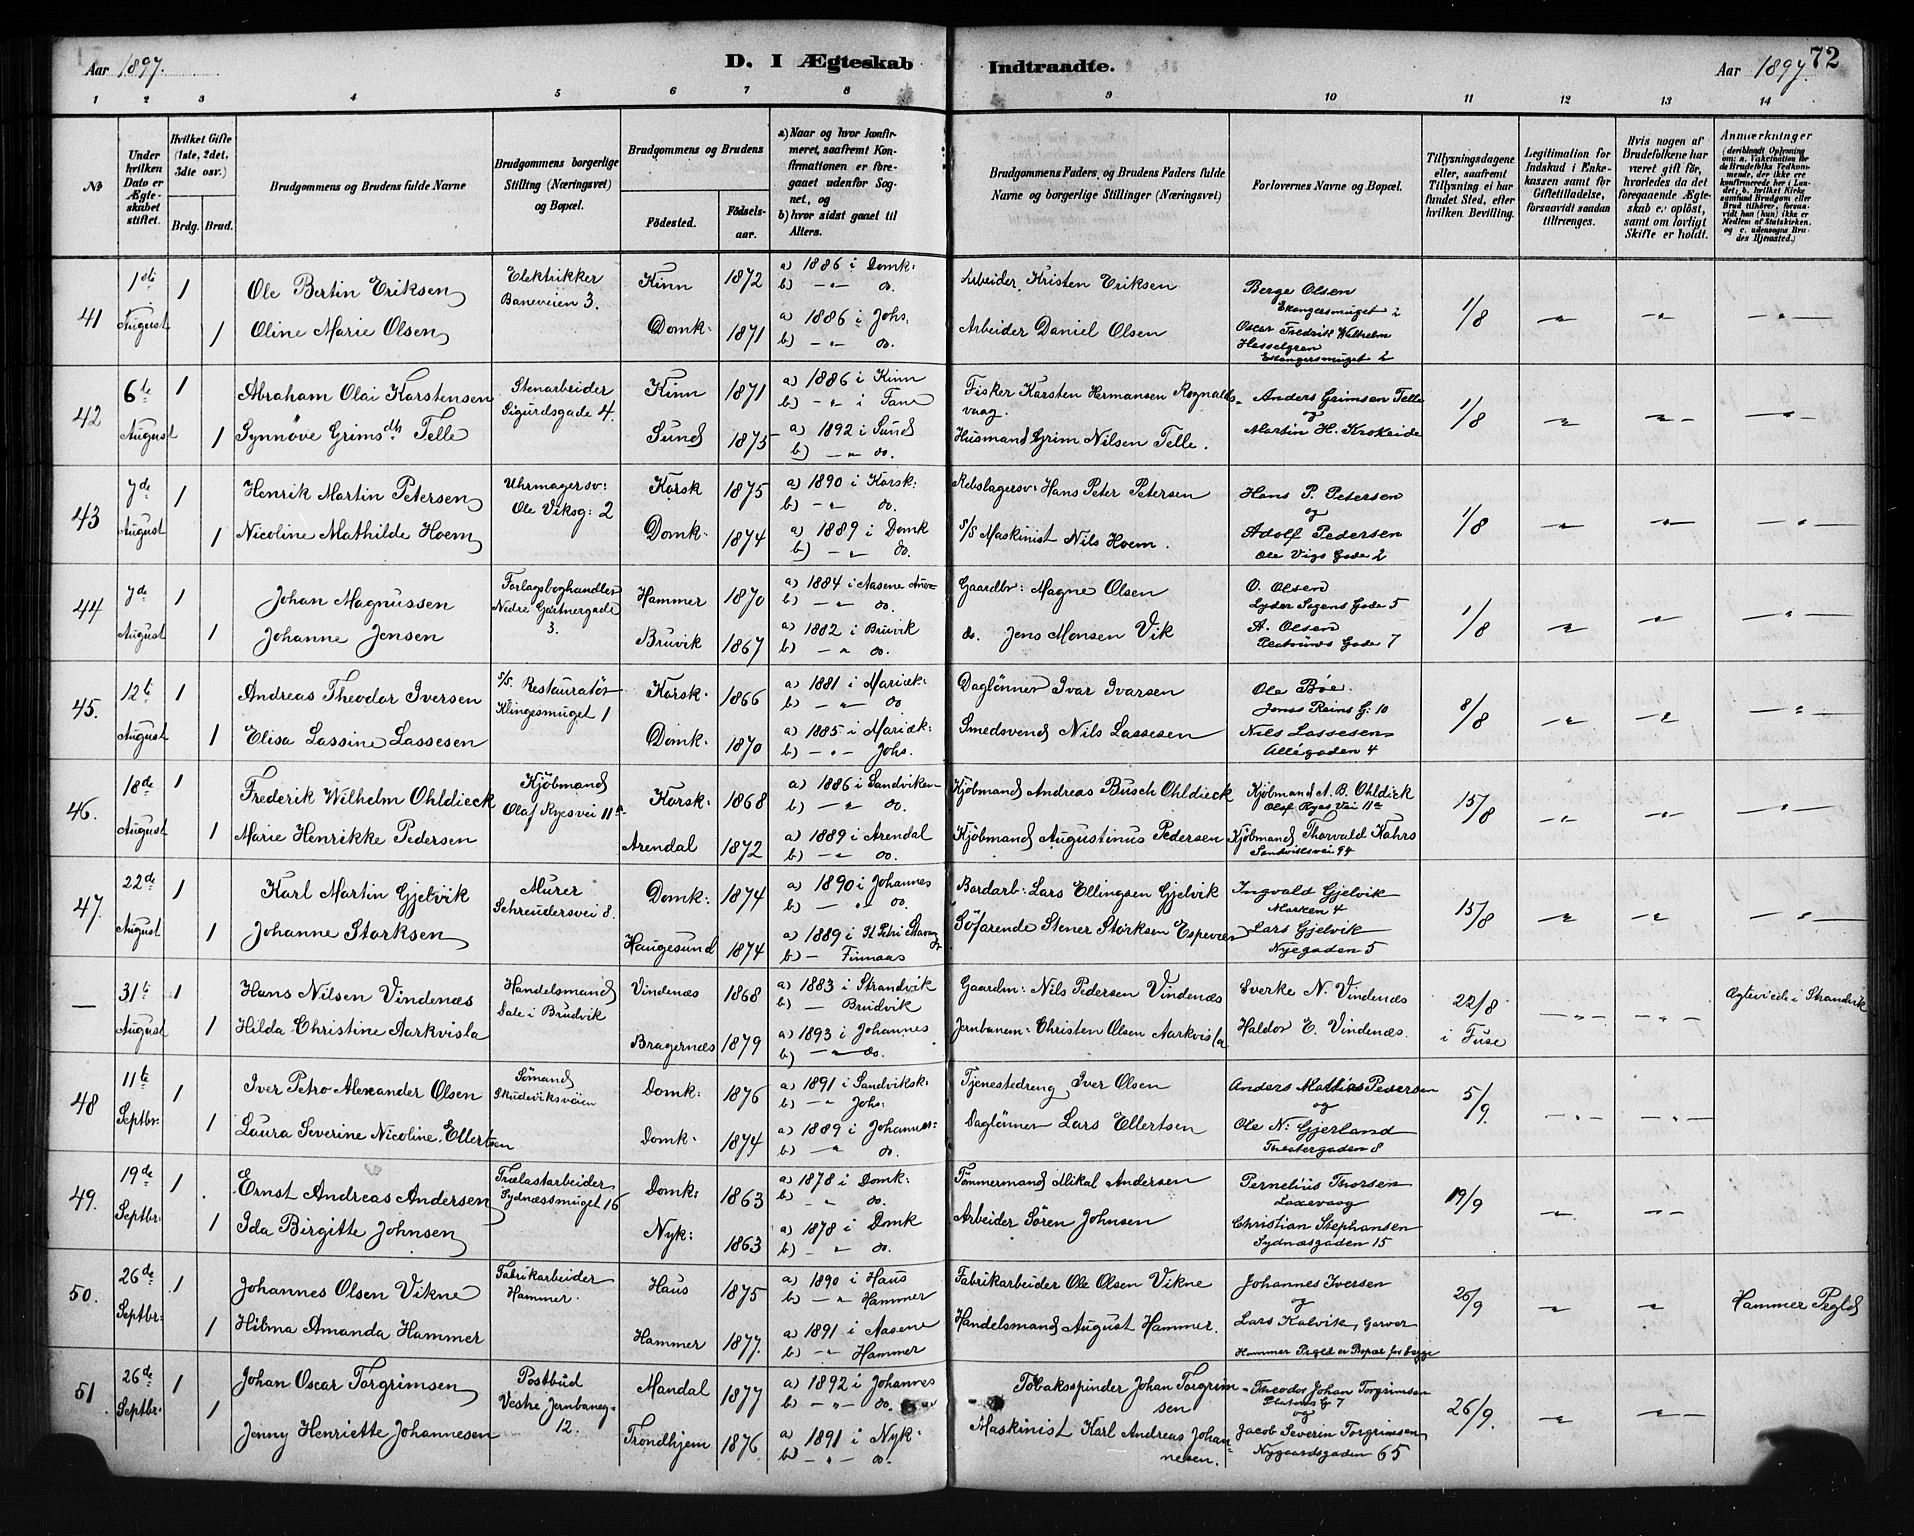 Aar 1897.
D. I Ægteskab Indtraadte.
Aar 1897.
72
1 2 3 4 5 6 7 8 9 10 11 12 13 14
No
Under hvilken Dato er Ægteskabet stiftet.
Hvilket Gifte (1ste, 2det, 3die osv.)
Brdg. Brud.
Brudgommens og Brudens fulde Navne
Brudgommens borgerlige Stilling (Næringsvei) og Bopæl.
Brudgommens og Brudens
Födested.
Födselsaar.
a) Naar og hvor konfirmeret, saafremt Konfirmationen er foregaaet udenfor Sognet, og
b) hvor sidst gaaet til Alters.
Brudgommens Faders, og Brudens Faders fulde Navne og borgerlige Stillinger (Næringsvei)
Forlovernes Navne og Bopæl.
Tillysningsdagene eller, saafremt Tillysning ei har fundet Sted, efter hvilken Bevilling.
Legitimation for Indskud i Enkekassen samt for Giftetilladelse, forsaavidt saadan tiltrænges.
Hvis nogen af Brudefolkene har været gift för, hvorledes da det foregaaende Ægteskab er oplöst, samt om lovligt Skifte er holdt.
Anmærkninger (deriblandt Oplysning om: a. Vakcination for de Brudefolks Vedkommende, der ikke ere konfirmerede her i Landet; b. hvilket Kirkesamfund Brudgom eller Brud tilhörer, forsaavidt han (hun) ikke er Medlem af Statskirken, og c. udensogns Brudes Hjemsted.)
41 1ste August 1 Ole Bertin Eriksen Elektrikker Baneveien 3. Kinn 1872 a) 1886 i Domk: b) -"- do. Arbeider Kristen Eriksen Berge Olsen Ekangersmuget 2
1 Oline Marie Olsen Domk: 1871 a) 1886 i Johs: b) -"- do. Arbeider Daniel Olsen Oscar Fredrik Walhelm Hasselgren Ekangersmuget 2 1/8 -"- -"- -"-
42 6te August 1 Abraham Olai Karstensen Stenarbeider Sigurdsgade 4. Kinn 1871 a) 1886 i Kinn b) -"- i Fane Fisker Karsten Hermansen Rognaldsvaag. Anders Grimsen Telle og
1 Synnøve Grimsdtr Telle Sund 1875 a) 1892 i Sund b) -"- do. Husmand Grim Nilsen Telle. Martin H. Krokeide 1/8 -"- -"- -"-
43 7de August 1 Henrik Martin Petersen Uhrmagersv: Ole Viksg: 2 Korsk 1875 a) 1890 i Korsk: b) -"- do. Rebslagersv: Hans Peter Petersen Hans P. Petersen og
1 Nicoline Mathilde Hoem Domk: 1874 a) 1889 i Domk b) -"- do. S/S Maskinist Nils Hoem. Adolf Pedersen Ole Vigs Gade 2 1/8 -"- -"- -"-
44 7de August 1 Johan Magnussen Forlagsboghandler Nedre Gartnergade 3. Hammer 1870 a) 1884 i Aasene b) -"- do. Gaardbr: Magne Olsen O. Olsen Lyder Sagens Gade 5
1 Johanne Jensen Bruvik 1867 a) 1882 i Bruvik b) -"- do. do. Jens Monsen Vik A. Olsen Gade 7 1/8 -"- -"- -"-
45. 12te August 1 Andreas Theodor Iversen S/S. Restauratør Klingesmuget 1 Korsk. 1866 a) 1881 i Mariæk: b) -"- do Daglønner Ivar Ivarsen Ole Bøe. Jonas Reins G: 10
1 Elisa Lassine Lassesen Domk: 1870 a) 1885 i Mariæk: b) -"- Johs. Smedsvend Nils Lassesen Nils Lassesen Allégaden 4 8/8 -"- -"- -"-
46. 18de August 1 Frederik Wilhelm Ohldieck Kjöbmand Olaf Ryesvei 11a Korsk: 1868 a) 1886 i Sandviken b) -"- do. Kjöbmand Andreas Busch Ohldieck Kjöbmand A. B. Ohldick Olaf Ryes Vei 11a
1 Marie Henrikke Pedersen Arendal 1872 a) 1889 i Arendal b) -"- do. Kjöbmand Augustinus Pedersen Kjöbmand Thorvald Kahrs Sandviksvei 94 15/8 -"- -"- -"-
47. 22de August 1 Karl Martin Gjelvik Murer Schreudersvei 8. Domk: 1874 a) 1890 i Johannes b) -"- do. Bordarb: Lars Ellingsen Gjelvik Ingvald Gjelvik Marken 4
1 Johanne Storksen Haugesund 1874 a) 1889 i St Petri Stavangr b) - Finnaas Söfarende Stener Størksen Espevær Lars Gjelvik Nyegaden 5 15/8 -"- -"- -"-
— 31te August 1 Hans Nilsen Vindenæs Handelsmand Dale i Brudvik Vindenæs 1868 a) 1883 i Strandvik b) - Brudvik Gaardm: Nils Pedersen Vindenæs Sverke N. Vindenæs
1 Hilda Christine Aarkvisla Bragernæs 1879 a) 1893 i Johannes b) -"- do. Jernbanem: Christen Olsen Aarkvisla Haldor E. Vindenæs. 22/8 i Fuse -"- -"- Ægteviede i Strandvik
48 11te Septbr: 1 Iver Petro Alexander Olsen Sømand Skudeviksveien Domk: 1876 a) 1891 i Sandviksk: b) -"- Johs: Tjenestedreng Iver Olsen Anders Mathias Pedersen og
1 Laura Severine Nicoline Ellertsen Domk: 1874 a) 1889 i Johannes: b) -"- do. Daglønner Lars Ellertsen Ole N: Gjerland Theatergaden 8 5/9. -"- -"- -"-
49. 19de Septbr: 1 Ernst Andreas Andersen Trælastarbeider Sydnæssmuget 16 Domk: 1863 a) 1878 i Domk: b) -"- do. Tømmermand Mikal Andersen Pernelius Thorsen Laxevaag
1 Ida Birgitte Johnsen Nyk: 1863 a) 1878 i Domk b) -"- do. Arbeider Sören Johnsen Christian Stephansen Sydnæsgaden 15 19/9 -"- -"- -"-
50. 26de Septbr: 1 Johannes Olsen Vikne Fabrikarbeider Hammer. Haus 1875 a) 1890 i Haus b) -"- Hammer Fabrikarbeider Ole Olsen Vikne Johannes Iversen og
1 Hilma Amanda Hammer Hammer 1877. a) 1891 i Aasene b) -"- Hammer Handelsmand August Hammer. Lars Kalvik, Garver Hammer Prgld er Bopæl for begge 26/9 -"- -"- Hammer Prgld
51 26de Septbr. 1 Johan Oscar Torgrimsen Postbud Vestre Jernbaneg. 12. Mandal 1877 a) 1892 i Johannes b) -"- do. Tobaksspinder Johan Torgrimsen Theodor Johan Torgrimsen G 7 og
1 Jenny Henriette Johannesen Trondhjem 1876 a) 1891 i Nyk: b) -"- do. Maskinist Karl Andreas Johannesen. Jacob Severin Torgrimsen Nygaardsgaden 65 26/9. -"- -"-